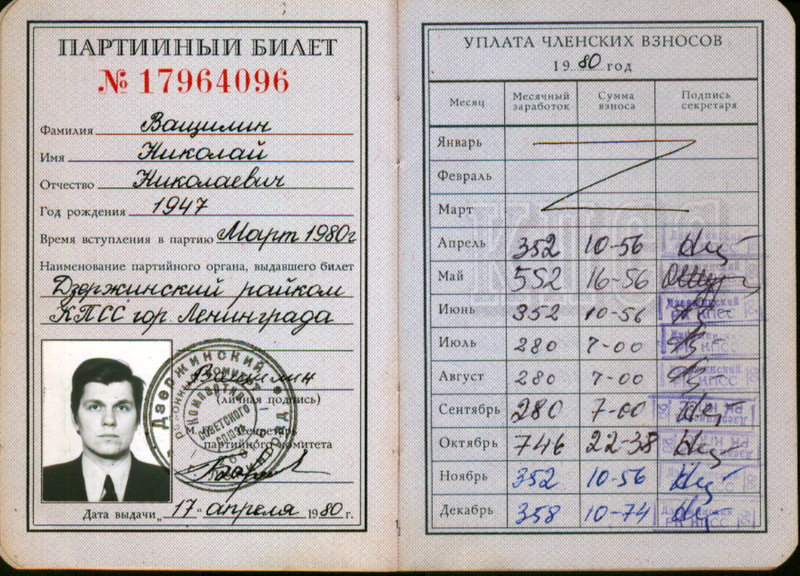 ПАРТИЙНЫЙ БИЛЕТ
№ 17964096
Фамилия Ващилин
Имя Николай
Отчество Николаевич
Год рождения 1947
Время вступления в партию Март 1980г
Наименование партийного органа, выдавшего билет
Дзержинский райком
КПСС гор. Ленинграда
Ващилин
(личная подпись)
М. П. Секретарь
партийного комитета
Дата выдачи „17“ апреля 1980 г.
УПЛАТА ЧЛЕНСКИХ ВЗНОСОВ
1980 год
Месяц Месячный заработок Сумма взноса Подпись секретаря
Январь
Февраль
Март
Апрель 352 10-56
Май 552 16-56
Июнь 352 10-56
Июль 280 7-00
Август 280 7-00
Сентябрь 280 7-00
Октябрь 746 22-38
Ноябрь 352 10-56
Декабрь 358 10-74